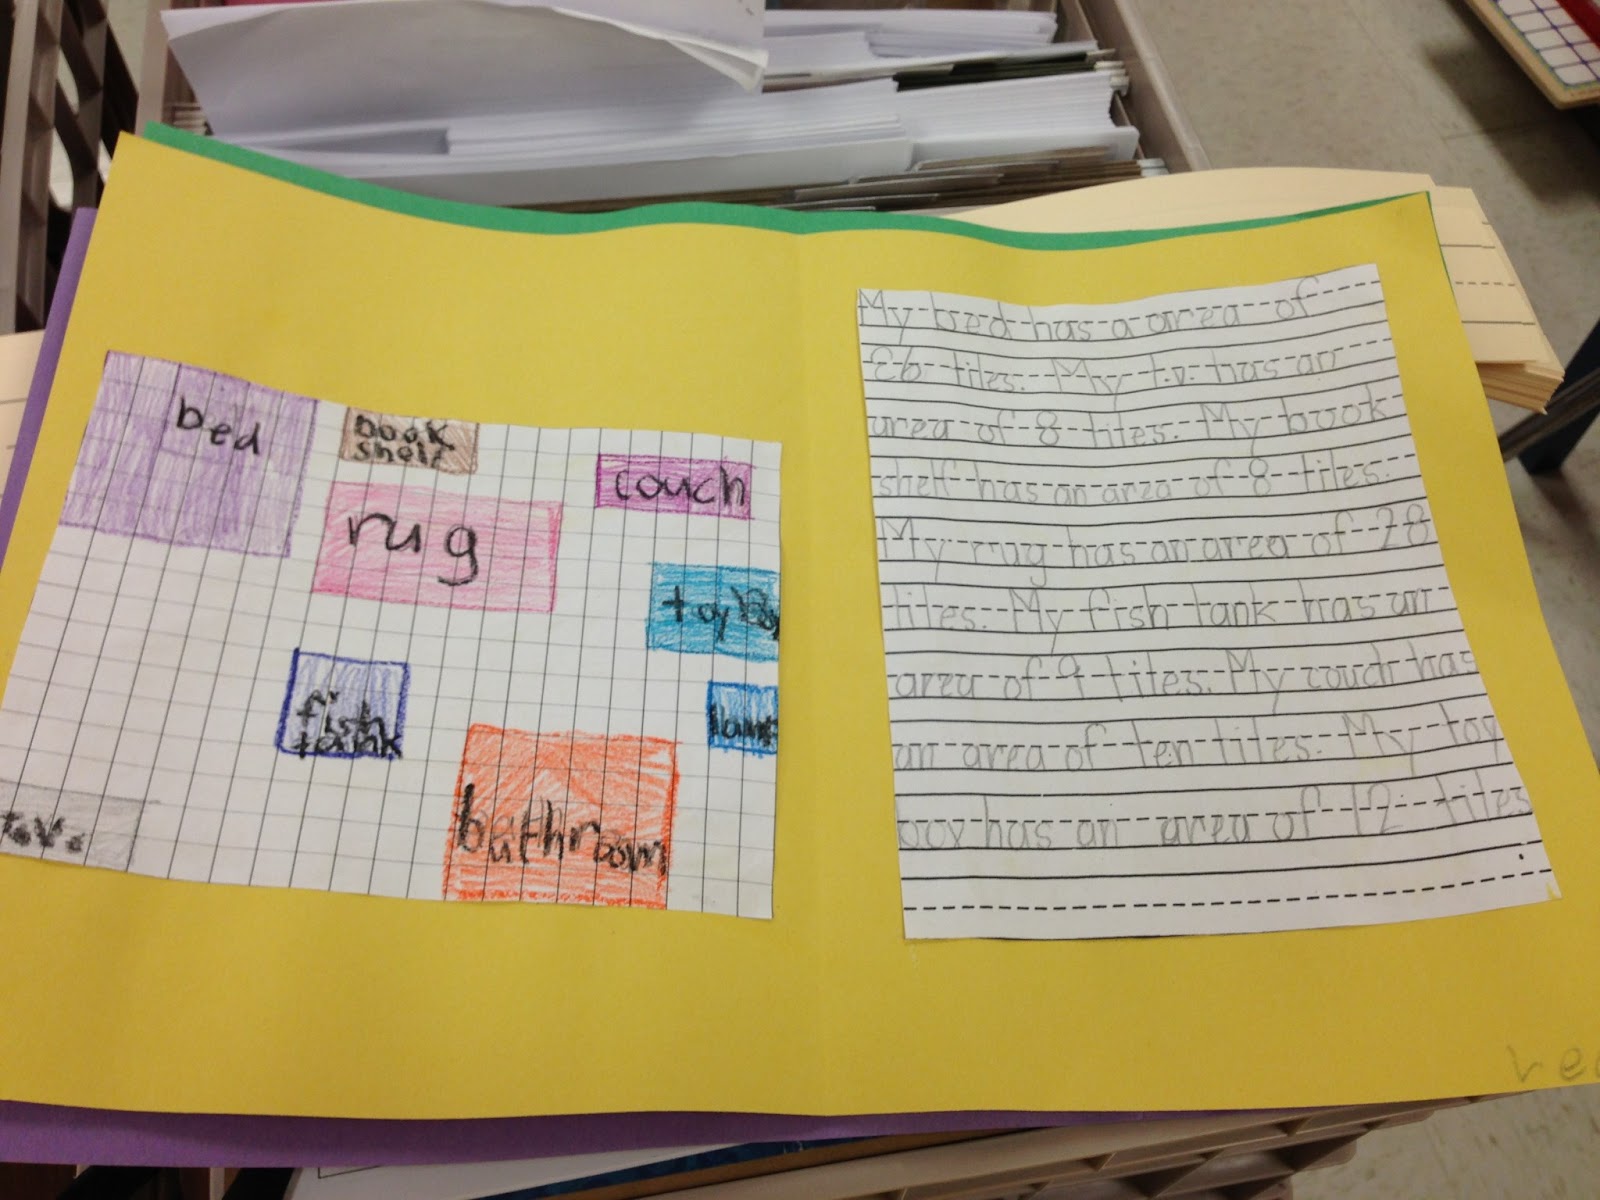 bed
book
shelf
couch
rug
toy Box
fish
tank
bathroom
t.v.
My bed has a area of
36 tiles. My t.v. has an
area of 8 tiles. My book
shelf has an area of 8 tiles.
My rug has an area of 28
tiles. My fish tank has an
area of 9 tiles. My couch has
an area of ten tiles. My toy
box has an area of 12 tiles
.